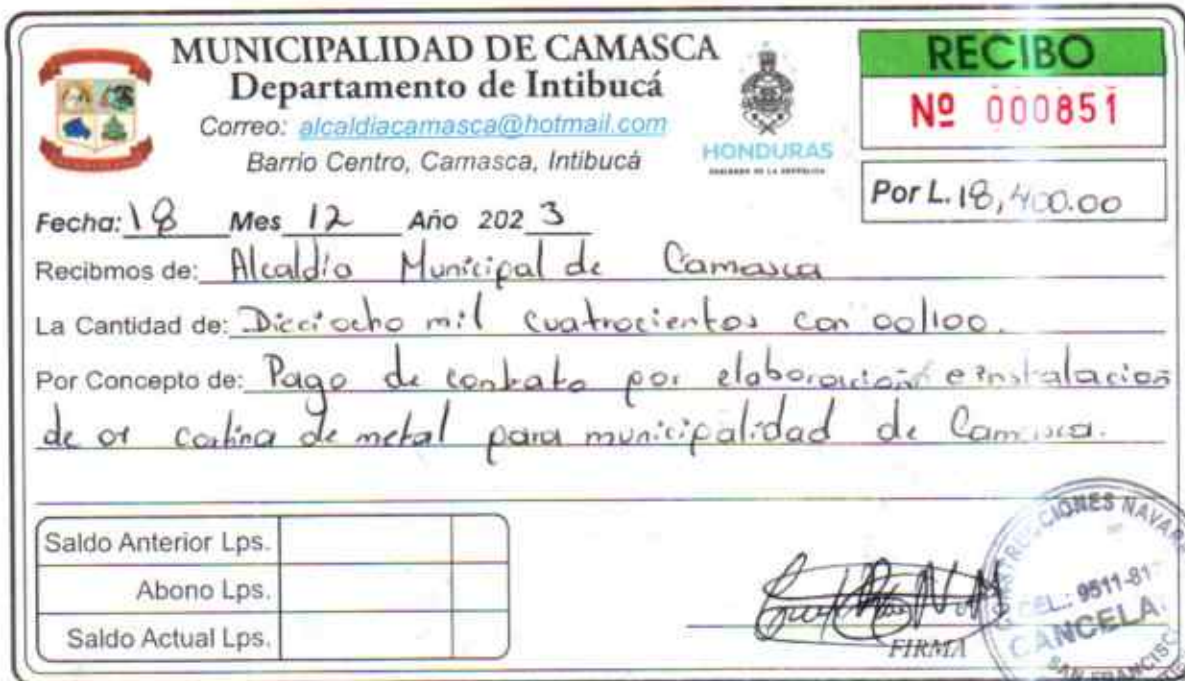 MUNICIPALIDAD DE CAMASCA
Departamento de Intibucá
Correo: alcaldiacamasca@hotmail.com
Barrio Centro, Camasca, Intibucá
HONDURAS
GOBIERNO DE LA REPÚBLICA
RECIBO
Nº 000851
Por L. 18,400.00
Fecha: 18 Mes 12 Año 2023
Recibmos de: Alcaldia Municipal de Camasca
La Cantidad de: Dicciocho mil cuatrocientos con 00/100.
Por Concepto de: Pago de contrato por elaboración e instalacion
de 01 cortina de metal para municipalidad de Camasca.
Saldo Anterior Lps.
Abono Lps.
Saldo Actual Lps.
FIRMA
CIONES NAVAR
CEL.: 9511-81
CANCELA
SAN FRANCISC